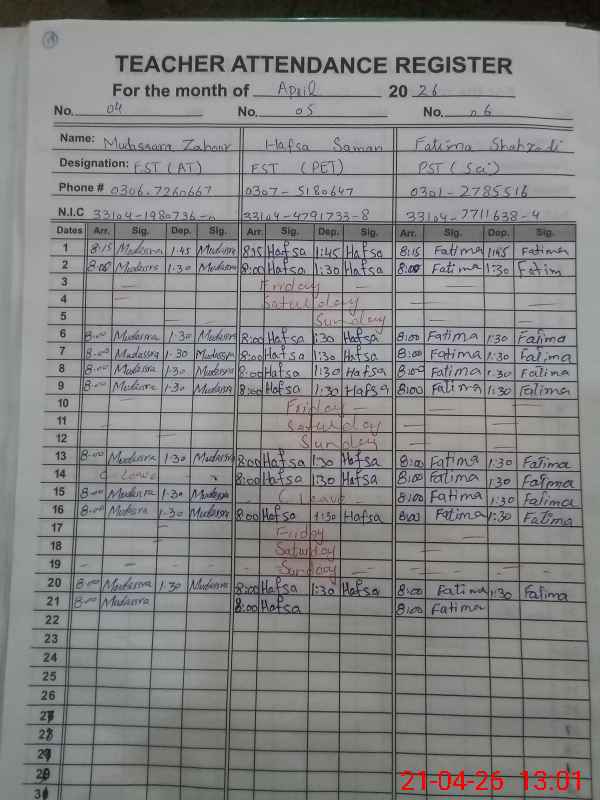 TEACHER ATTENDANCE REGISTER
For the month of April 20 26
No. 04 No. 05 No. 06
Name: Mudassara Zahoor Hafsa Saman Fatima Shahzadi
Designation: EST (AT) EST (PET) PST (Sci)
Phone # 0306-7260667 0307-5180647 0301-2785516
N.I.C 33104-1980736-0 33104-4791733-8 33104-7711638-4
Dates Arr. Sig. Dep. Sig. Arr. Sig. Dep. Sig. Arr. Sig. Dep. Sig.
1 8:15 Mudassra 1:45 Mudassra 8:15 Hafsa 1:45 Hafsa 8:15 Fatima 1:45 Fatima
2 8:00 Mudassra 1:30 Mudassra 8:00 Hafsa 1:30 Hafsa 8:00 Fatima 1:30 Fatim
3 Friday
4 Saturday
5 Sunday
6 8:00 Mudassra 1:30 Mudassra 8:00 Hafsa 1:30 Hafsa 8:00 Fatima 1:30 Fatima
7 8:00 Mudassra 1:30 Mudassra 8:00 Hafsa 1:30 Hafsa 8:00 Fatima 1:30 Fatima
8 8:00 Mudassra 1:30 Mudassra 8:00 Hafsa 1:30 Hafsa 8:00 Fatima 1:30 Fatima
9 8:00 Mudassra 1:30 Mudassra 8:00 Hafsa 1:30 Hafsa 8:00 Fatima 1:30 Fatima
10 Friday
11 Saturday
12 Sunday
13 8:00 Mudassra 1:30 Mudassra 8:00 Hafsa 1:30 Hafsa 8:00 Fatima 1:30 Fatima
14 C-Leave 8:00 Hafsa 1:30 Hafsa 8:00 Fatima 1:30 Fatima
15 8:00 Mudassra 1:30 Mudassra C Leave 8:00 Fatima 1:30 Fatima
16 8:00 Mudassra 1:30 Mudassra 8:00 Hafsa 1:30 Hafsa 8:00 Fatima 1:30 Fatima
17 Friday
18 Saturday
19 Sunday
20 8:00 Mudassra 1:30 Mudassra 8:00 Hafsa 1:30 Hafsa 8:00 Fatima 1:30 Fatima
21 8:00 Mudassra 8:00 Hafsa 8:00 Fatima
22
23
24
25
26
27
28
29
30
31
21-04-26 13:01